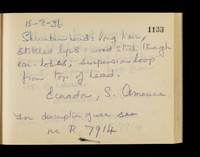 15-9-36
1133
Shrunken head long hair,
stitched lips and stick through
ear-lobes; suspension loop
from top of head.
Ecuador, S. America
For description given see
no R 7914